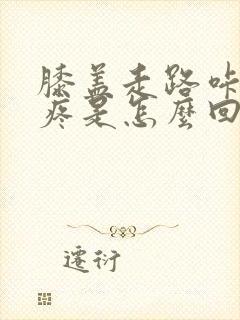 膝盖走路咔
疼是怎麼回
遷衍